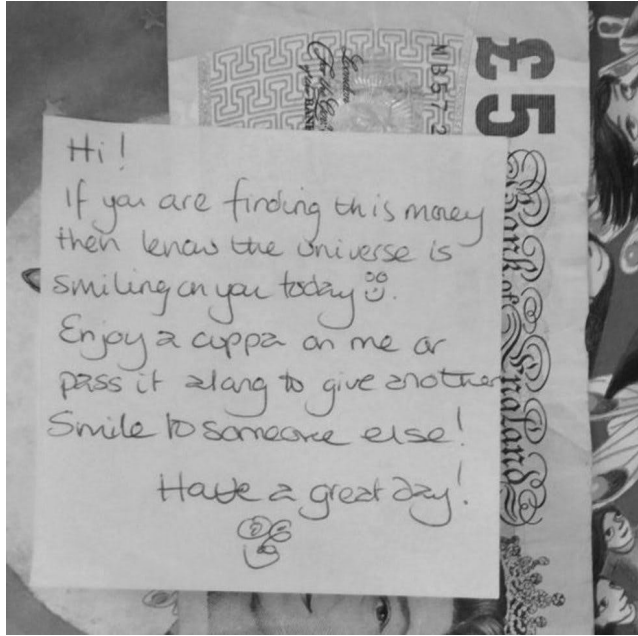 £5
MB57 2
Bank of England
Hi!
If you are finding this money
then know the universe is
smiling on you today
Enjoy a cuppa on me or
pass it along to give another
smile to someone else!
Have a great day!